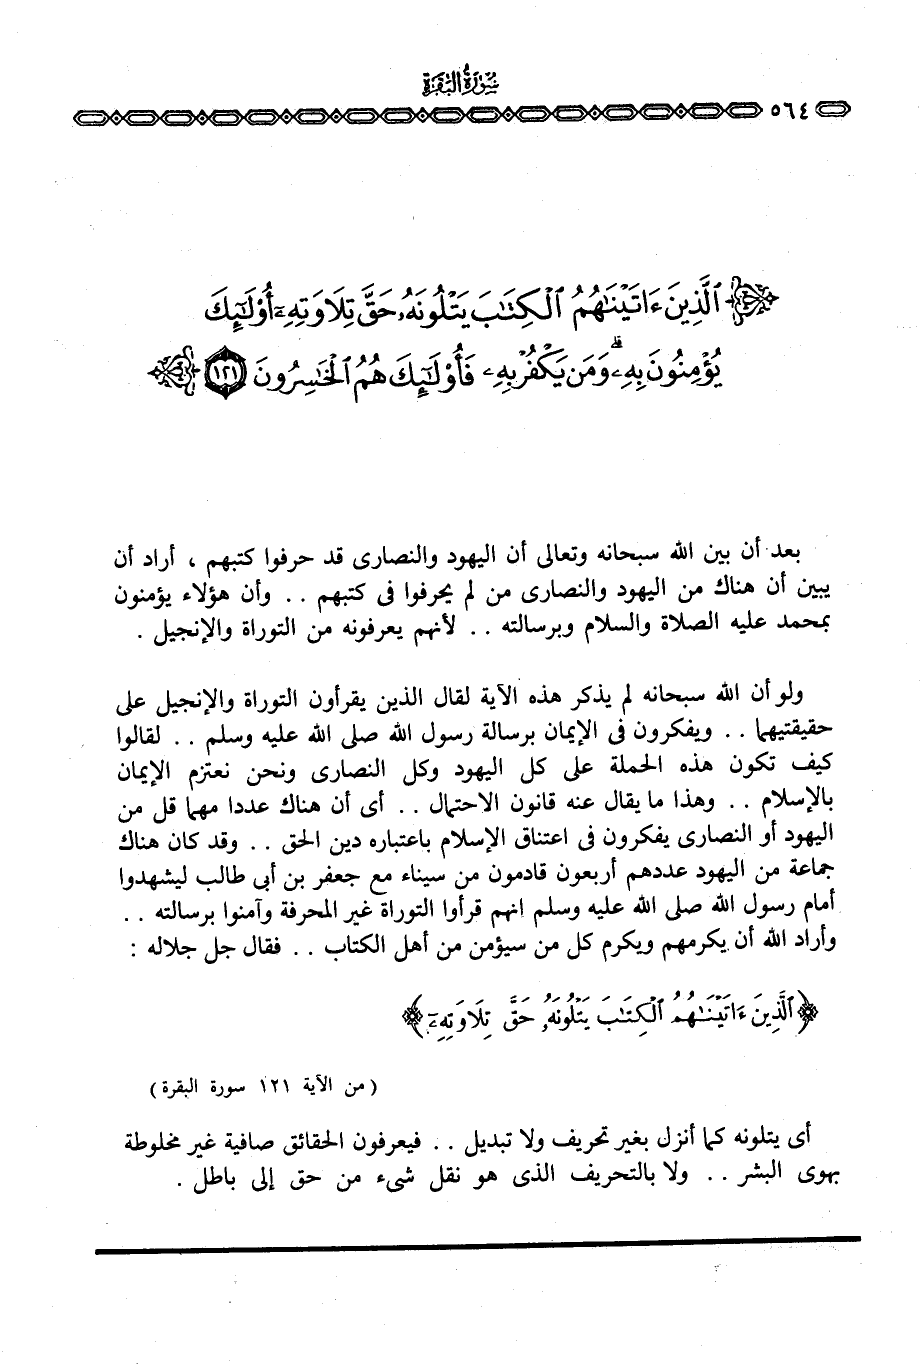 سُورَةُ البَقَرَة
٥٦٤
ٱلَّذِينَ ءَاتَيْنَٰهُمُ ٱلْكِتَٰبَ يَتْلُونَهُۥ حَقَّ تِلَاوَتِهِۦٓ أُوْلَٰٓئِكَ
يُؤْمِنُونَ بِهِۦۗ وَمَن يَكْفُرْ بِهِۦ فَأُوْلَٰٓئِكَ هُمُ ٱلْخَٰسِرُونَ ١٢١
بعد أن بين الله سبحانه وتعالى أن اليهود والنصارى قد حرفوا كتبهم ، أراد أن
يبين أن هناك من اليهود والنصارى من لم يحرفوا فى كتبهم .. وأن هؤلاء يؤمنون
بمحمد عليه الصلاة والسلام وبرسالته .. لأنهم يعرفونه من التوراة والإنجيل .
ولو أن الله سبحانه لم يذكر هذه الآية لقال الذين يقرأون التوراة والإنجيل على
حقيقتيهما .. ويفكرون فى الإيمان برسالة رسول الله صلى الله عليه وسلم .. لقالوا
كيف تكون هذه الحملة على كل اليهود وكل النصارى ونحن نعتزم الإيمان
بالإسلام .. وهذا ما يقال عنه قانون الاحتمال .. أى أن هناك عددا مهما قل من
اليهود أو النصارى يفكرون فى اعتناق الإسلام باعتباره دين الحق .. وقد كان هناك
جماعة من اليهود عددهم أربعون قادمون من سيناء مع جعفر بن أبى طالب ليشهدوا
أمام رسول الله صلى الله عليه وسلم انهم قرأوا التوراة غير المحرفة وآمنوا برسالته ..
وأراد الله أن يكرمهم ويكرم كل من سيؤمن من أهل الكتاب .. فقال جل جلاله :
﴿ٱلَّذِينَ ءَاتَيْنَٰهُمُ ٱلْكِتَٰبَ يَتْلُونَهُۥ حَقَّ تِلَاوَتِهِۦٓ﴾
( من الآية ١٢١ سورة البقرة )
أى يتلونه كما أنزل بغير تحريف ولا تبديل .. فيعرفون الحقائق صافية غير مخلوطة
بهوى البشر .. ولا بالتحريف الذى هو نقل شىء من حق إلى باطل .